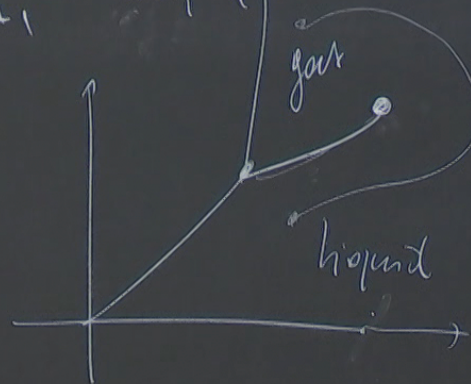 gas
liquid